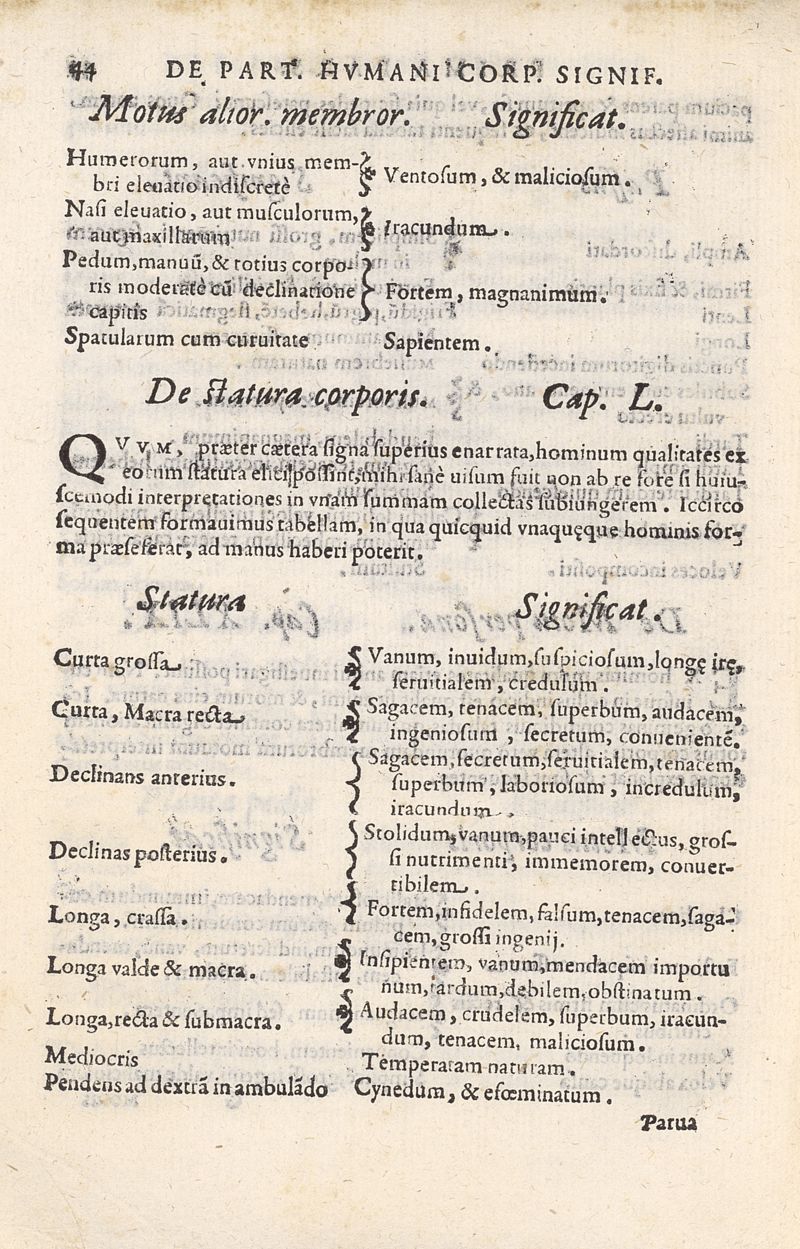 44 DE PART. HVMANI CORP. SIGNIF.
Motus alior. membror. Significat.
Humerorum, aut vnius mem-
bri eleuatio indiſcretè
Ventoſum, & malicioſum.
Naſi eleuatio, aut muſculorum,
aut maxillarum
Iracundum.
Pedum, manuũ, & totius corpo-
ris moderatè cũ declinatione
capitis
Fortem, magnanimum.
Spatularum cum curuitate Sapientem.
De ſtatura corporis. Cap. L.
QVVM, præter cætera ſigna ſuperius enarrata, hominum qualitates ex
eorum ſtatura elici poſſint, mihi ſanè uiſum fuit non ab re fore ſi huiu-
ſcemodi interpretationes in vnam ſummam collectas ſubiungerem. Iccirco
ſequentem formauimus tabellam, in qua quicquid vnaquęque hominis for-
ma præſeferat, ad manus haberi poterit.
Statura Significat.
Curta groſſa
Vanum, inuidum, ſuſpicioſum, longę irę,
ſeruitialem, credulum.
Curta, Macra recta
Sagacem, tenacem, ſuperbum, audacem,
ingenioſum, ſecretum, conuenientẽ.
Declinans anterius.
Sagacem, ſecretum, ſeruitialem, tenacem,
ſuperbum, laborioſum, incredulum,
iracundum.
Declinãs poſterius.
Stolidum, vanum, pauci intellectus, groſ-
ſi nutrimenti, immemorem, conuer-
tibilem.
Longa, craſſa.
Fortem, infidelem, falſum, tenacem, ſaga-
cem, groſſi ingenij.
Longa valde & macra.
Inſipientem, vanum, mendacem importu
num, tardum, debilem, obſtinatum.
Longa, recta & ſubmacra.
Audacem, crudelem, ſuperbum, iracun-
dum, tenacem, malicioſum.
Mediocris Temperatam naturam.
Pendens ad dextrã in ambulãdo Cynedum, & efœminatum.
Parua